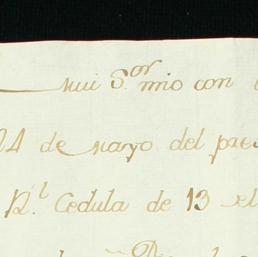 mui S.or mio con
24 de mayo del pres
R.l Cedula de 13 del